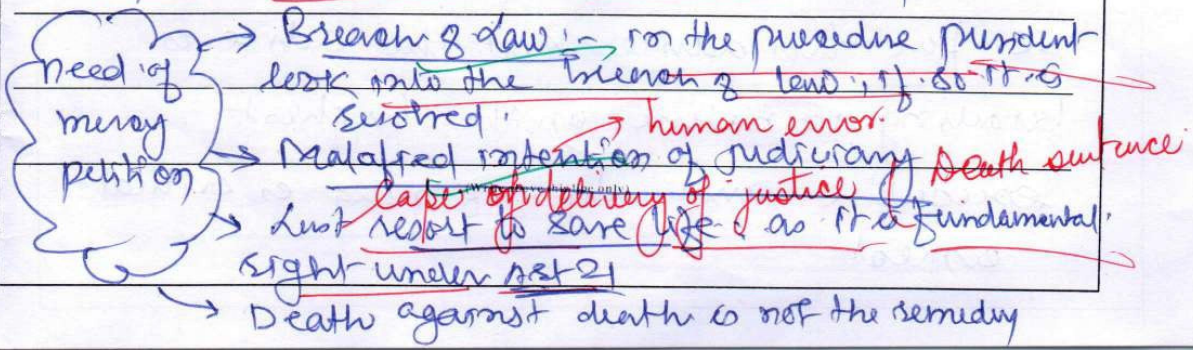 need of
mercy
petition
→ Breach of Law :- in the procedure president
look into the breach of law, if so it is
resolved.
→ human error
→ Malafied intention of judiciary
Death sentence
(Write above this line only)
lapse of delivery of justice
→ Last resort to save life as it is fundamental
right under Art 21
→ Death against death is not the remedy